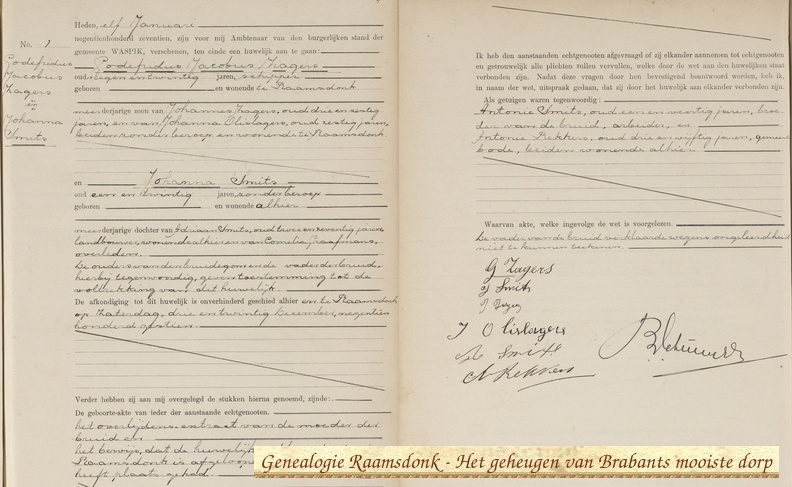 No. 1
Godefridus
Jacobus
Zagers
en
Johanna
Smits
Heden, elf Januari
negentienhonderd zeventien, zijn voor mij Ambtenaar van den burgerlijken stand der
gemeente WASPIK, verschenen, ten einde een huwelijk aan te gaan:
Godefridus Jacobus Zagers
oud negen en twintig jaren, schipper
geboren en wonende te Raamsdonk.
meerderjarige zoon van Johannes Zagers, oud drie en zestig
jaren, en van Johanna Olislagers, oud zestig jaren,
beiden zonder beroep en wonende te Raamsdonk.
en Johanna Smits
oud een en twintig jaren, zonder beroep
geboren en wonende alhier
meerderjarige dochter van Adriaan Smits, oud twee en zeventig jaren,
landbouwer, wonende alhier en van Cornelia Graafmans,
overleden.
De ouders van den bruidegom en de vader der bruid,
hierbij tegenwoordig, geven toestemming tot de
voltrekking van dit huwelijk.
De afkondiging tot dit huwelijk is onverhinderd geschied alhier en te Raamsdonk
op Zaterdag, drie en twintig December, negentien
honderd zestien.
Verder hebben zij aan mij overgelegd de stukken hierna genoemd, zijnde:
De geboorte-akte van ieder der aanstaande echtgenooten.
het overlijdens extract van de moeder der
bruid en
het bewijs, dat de huwelijks
Raamsdonk is afgeloopen
heeft plaats gehad.
Ik heb den aanstaanden echtgenooten afgevraagd of zij elkander aannemen tot echtgenooten
en getrouwelijk alle plichten zullen vervullen, welke door de wet aan den huwelijken staat
verbonden zijn. Nadat deze vragen door hen bevestigend beantwoord werden, heb ik,
in naam der wet, uitspraak gedaan, dat zij door het huwelijk aan elkander verbonden zijn.
Als getuigen waren tegenwoordig:
Antonie Smits, oud een en veertig jaren, broe-
der van de bruid, arbeider, en
Antonie Rekkers, oud drie en vijftig jaren, gemeente
bode, beiden wonende alhier
Waarvan akte, welke ingevolge de wet is voorgelezen.
De vader van de bruid verklaarde wegens ongeleerdheid
niet te kunnen teekenen.
G Zagers
J Smits
J Zagers
J Olislagers
Smits
A Rekkers
Genealogie Raamsdonk - Het geheugen van Brabants mooiste dorp